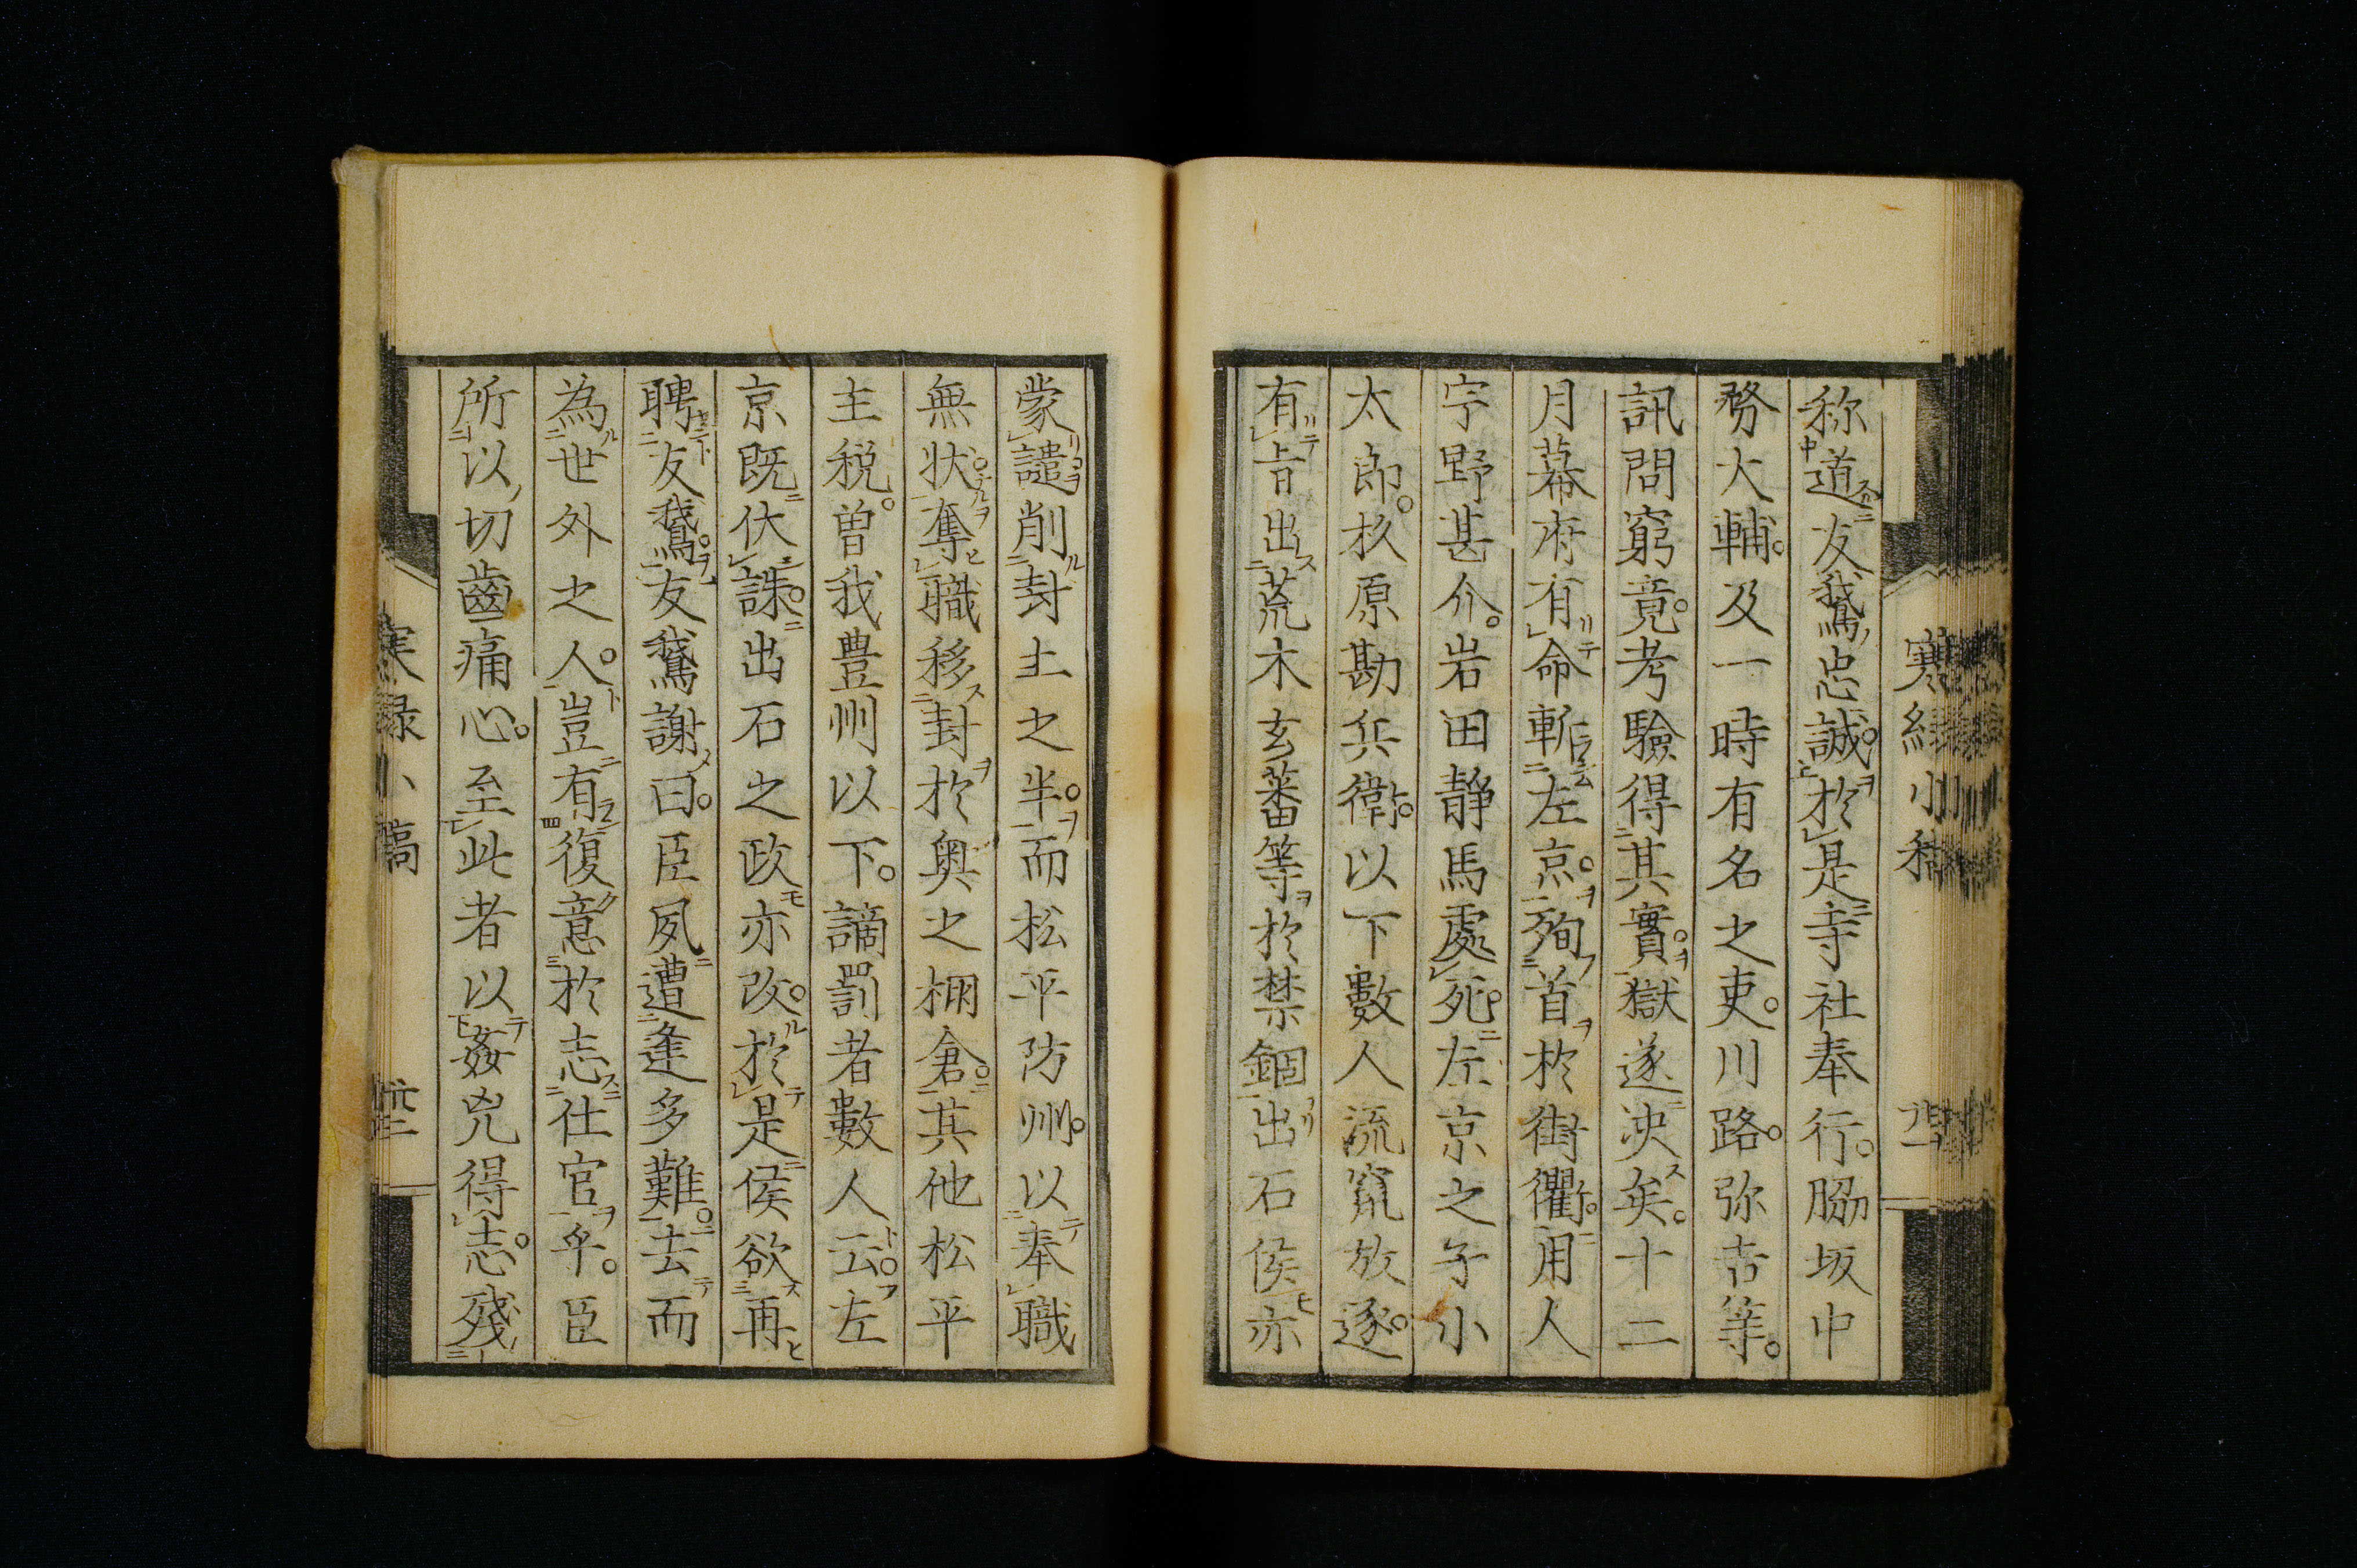 称道友鵞忠誠於是寺社奉行。脇坂中
務大輔。及一時有名之吏。川路。弥吉等。
訊問窮竟。考驗得其實。獄遂决矣。十二
月幕府有命斬左京。殉首於街衢。用人
宇野甚介。岩田静馬處死。左京之子小
太郎。杉原勘兵衛。以下數人流竄放逐。
有旨出荒木玄蕃等於禁錮出石侯亦
蒙譴削封土之半。而松平防州。以奉職
無状。奪職移封於奥之棚倉。其他松平
主税。曽我豊州以下。謫罰者數人云。左
京既伏誅。出石之政亦改。於是侯欲再
聘友鵞。友鵞謝曰。臣夙遭逢多難。去而
為世外之人。豈有復意於志仕官乎。臣
所以切齒痛心。至此者以姦兇得志。殘